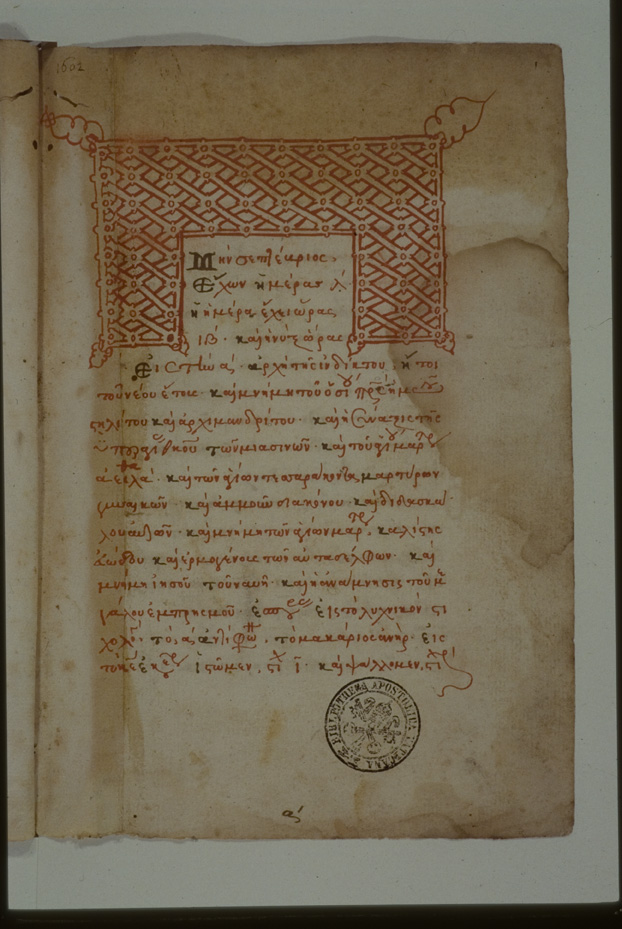 1602
Μὴν σεπτέβριος
ἔχων ἡμέρας λ
ἡ ἡμέρα ἔχει ὥρας
ιβ καὶ ἡ νὺξ ὥρας
εἰς τὴν α ἀρχὴ τῆς ἰνδίκτου ἤτοι
τοῦ νέου ἔτους καὶ μνήμη τοῦ ὁσί πρς ἡμ συ
καὶ ἀρχιμανδρίτου καὶ ἡ σύναξις τῆς
τῶν μιασινῶν καὶ τοῦ ἁγί μαρτυ
ἀειθαλᾶ καὶ τῶν ἁγίων τεσσαράκοντα μαρτύρων
γυναικῶν καὶ ἀμμοῦν διακόνου καὶ διδασκά
λου αὐτῶν καὶ μνήμη τῶν ἁγίων μαρτυρ καλίστης
εὐώδου καὶ ἑρμογένους τῶν αὐταδέλφων καὶ
μνήμη ἰησοῦ τοῦ ναυῆ καὶ ἡ ἀνάμνησις τοῦ με
γάλου ἐμπρησμοῦ εἰς τὸ λυχνικὸν στι
χολ τὸ α ἀντίφω τὸ μακάριος ἀνὴρ εἰς
τὸ κε ἐκεκρ ἱστῶμεν στι ι καὶ ψάλλομεν στιχρ
BIBLIOTHECA APOSTOLICA VATICANA
α